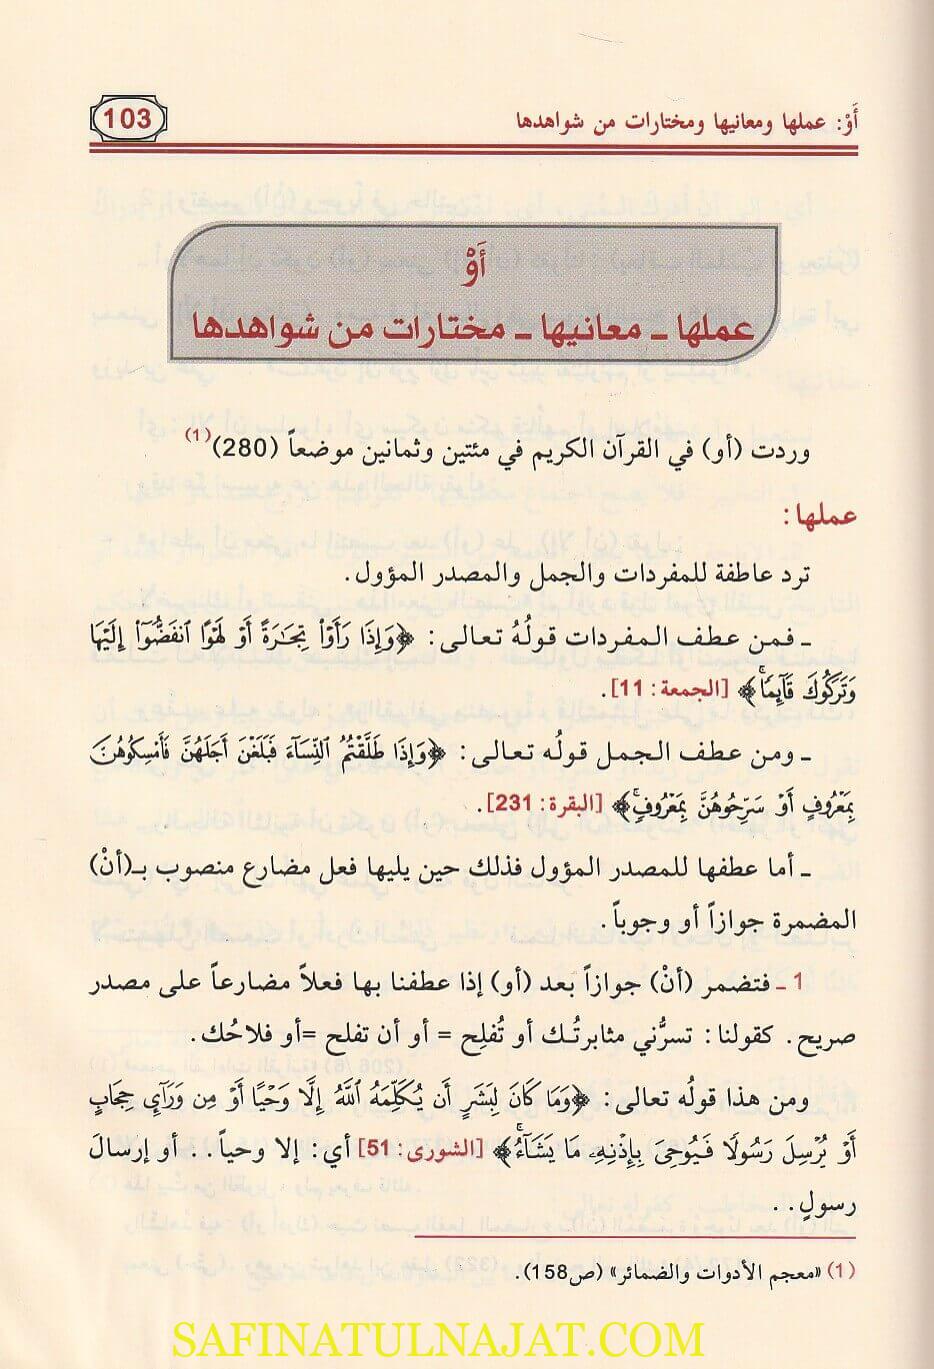 أَوْ: عملها ومعانيها ومختارات من شواهدها
103
أَوْ
عملها ـ معانيها ـ مختارات من شواهدها
وردت (أو) في القرآن الكريم في مئتين وثمانين موضعاً (280)(1)
عملها:
ترد عاطفة للمفردات والجمل والمصدر المؤول.
ـ فمن عطف المفردات قولُهُ تعالى: ﴿وَإِذَا رَأَوۡاْ تِجَٰرَةً أَوۡ لَهۡوًا ٱنفَضُّوٓاْ إِلَيۡهَا
وَتَرَكُوكَ قَآئِمٗاۚ﴾ [الجمعة: 11].
ـ ومن عطف الجمل قولُه تعالى: ﴿وَإِذَا طَلَّقۡتُمُ ٱلنِّسَآءَ فَبَلَغۡنَ أَجَلَهُنَّ فَأَمۡسِكُوهُنَّ
بِمَعۡرُوفٍ أَوۡ سَرِّحُوهُنَّ بِمَعۡرُوفٖۚ﴾ [البقرة: 231].
ـ أما عطفها للمصدر المؤول فذلك حين يليها فعل مضارع منصوب بـ(أنْ)
المضمرة جوازاً أو وجوباً.
1 ـ فتضمر (أنْ) جوازاً بعد (أو) إذا عطفنا بها فعلاً مضارعاً على مصدر
صريح. كقولنا: تسرُّني مثابرتُـك أو تُفلِح = أو أن تفلح =أو فلاحُك.
ومن هذا قولُه تعالى: ﴿وَمَا كَانَ لِبَشَرٍ أَن يُكَلِّمَهُ ٱللَّهُ إِلَّا وَحۡيًا أَوۡ مِن وَرَآيِٕ حِجَابٍ
أَوۡ يُرۡسِلَ رَسُولٗا فَيُوحِيَ بِإِذۡنِهِۦ مَا يَشَآءُۚ﴾ [الشورى: 51] أي: إلا وحياً.. أو إرسالَ
رسولٍ..
(1) «معجم الأدوات والضمائر» (ص158).
SAFINATULNAJAT.COM